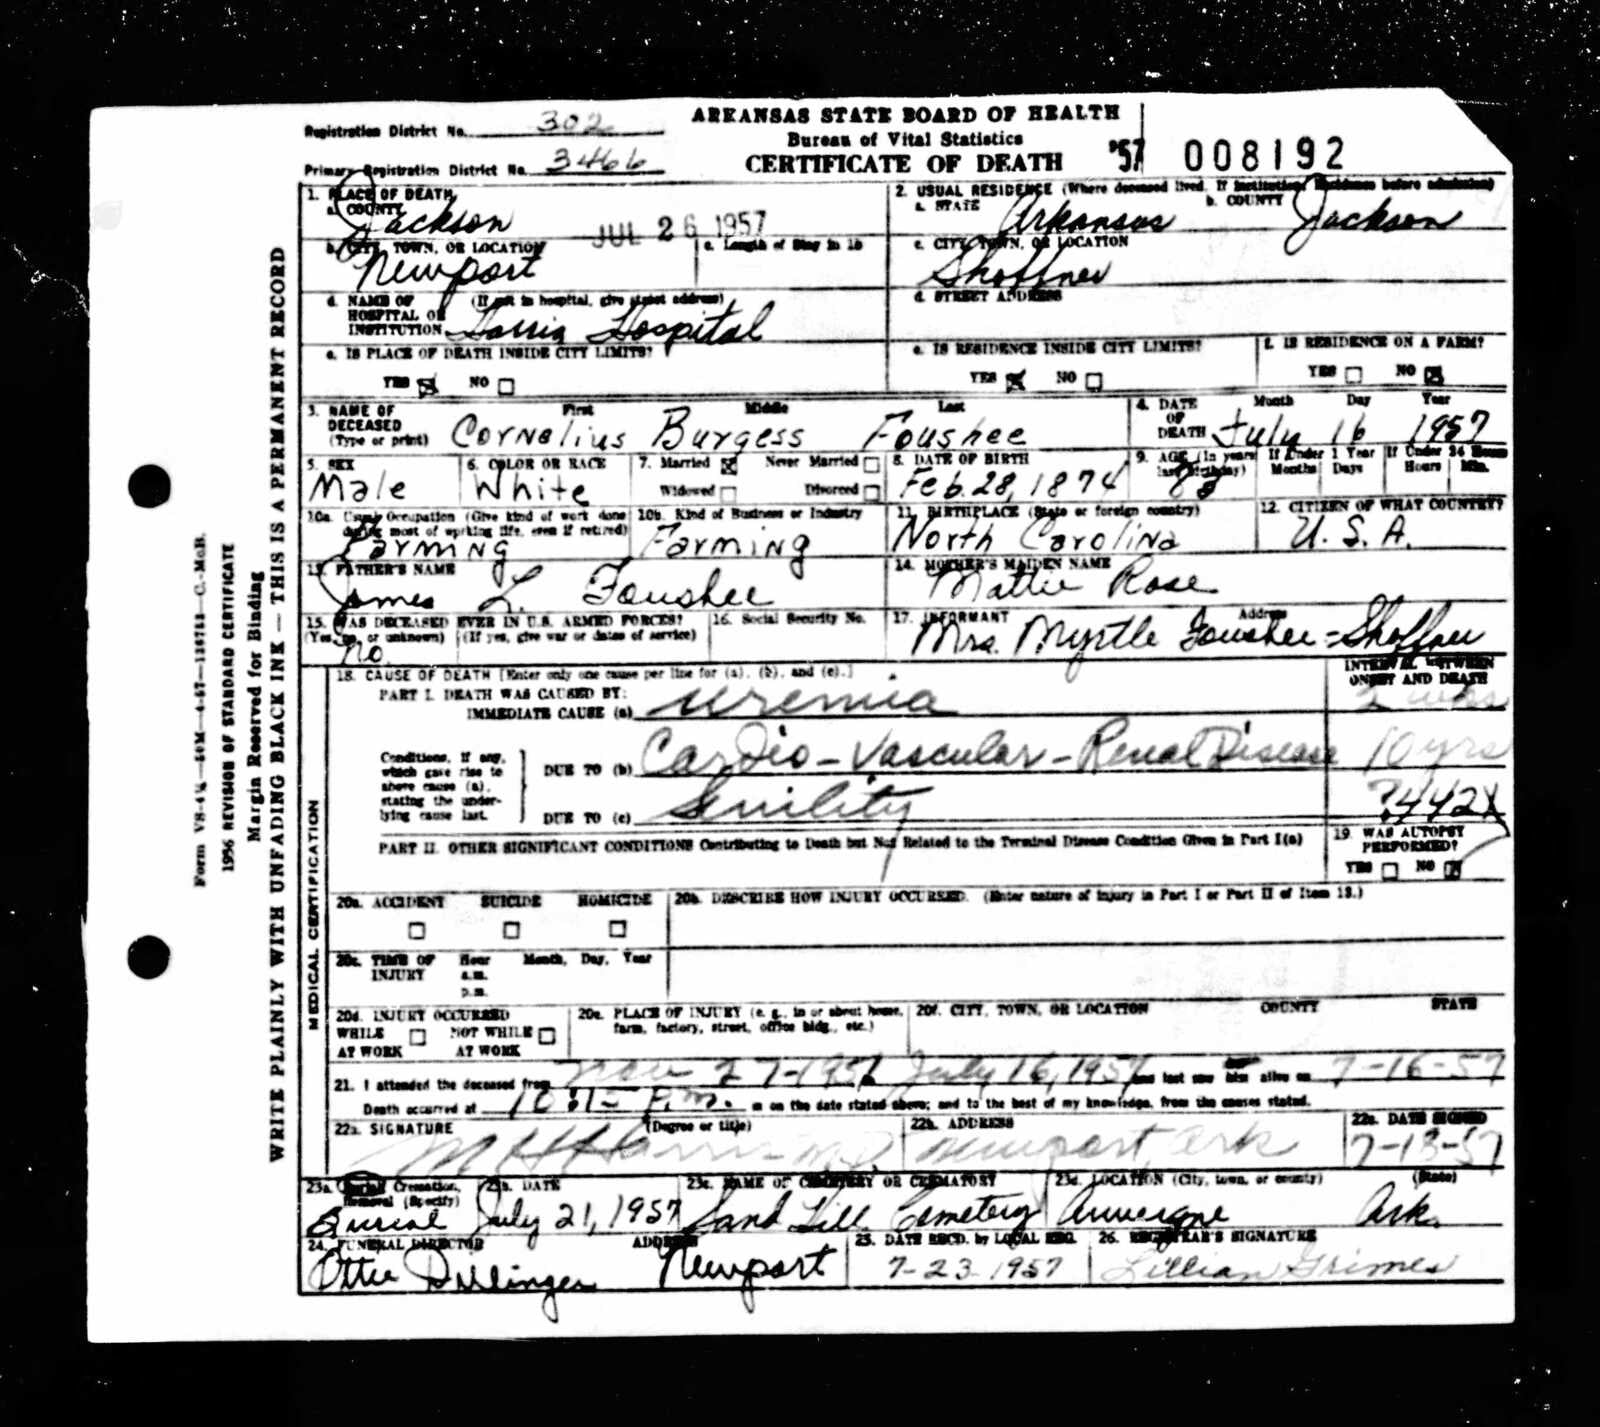 ARKANSAS STATE BOARD OF HEALTH
Bureau of Vital Statistics
CERTIFICATE OF DEATH '57 008192
Registration District No. 302
Primary Registration District No. 3466
1. PLACE OF DEATH
a. COUNTY Jackson
JUL 26 1957
b. CITY, TOWN, OR LOCATION Newport
c. Length of Stay in 1b
d. NAME OF HOSPITAL OR INSTITUTION (If not in hospital, give street address) Harris Hospital
e. IS PLACE OF DEATH INSIDE CITY LIMITS?
YES ☒ NO ☐
2. USUAL RESIDENCE (Where deceased lived. If institution: Residence before admission)
a. STATE Arkansas b. COUNTY Jackson
c. CITY, TOWN, OR LOCATION Shoffner
d. STREET ADDRESS
e. IS RESIDENCE INSIDE CITY LIMITS?
YES ☒ NO ☐
f. IS RESIDENCE ON A FARM?
YES ☐ NO ☒
3. NAME OF DECEASED (Type or print) First Middle Last
Cornelius Burgess Foushee
4. DATE OF DEATH Month Day Year
July 16 1957
5. SEX Male
6. COLOR OR RACE White
7. Married ☒ Never Married ☐
Widowed ☐ Divorced ☐
8. DATE OF BIRTH Feb. 28, 1874
9. AGE (In years last birthday) 83
If Under 1 Year Months Days
If Under 24 Hours Hours Min.
10a. Usual Occupation (Give kind of work done during most of working life, even if retired) Farming
10b. Kind of Business or Industry Farming
11. BIRTHPLACE (State or foreign country) North Carolina
12. CITIZEN OF WHAT COUNTRY? U.S.A.
13. FATHER'S NAME James L. Foushee
14. MOTHER'S MAIDEN NAME Mattie Rose
15. WAS DECEASED EVER IN U.S. ARMED FORCES?
(Yes, no, or unknown) (If yes, give war or dates of service)
no.
16. Social Security No.
17. INFORMANT Address
Mrs. Myrtle Foushee - Shoffner
18. CAUSE OF DEATH [Enter only one cause per line for (a), (b), and (c).]
INTERVAL BETWEEN ONSET AND DEATH
PART I. DEATH WAS CAUSED BY:
IMMEDIATE CAUSE (a) Uremia 2 wks
Conditions, if any, which gave rise to above cause (a), stating the underlying cause last.
DUE TO (b) Cardio-Vascular-Renal Disease 10 yrs
DUE TO (c) Senility
442X
PART II. OTHER SIGNIFICANT CONDITIONS Contributing to Death but Not Related to the Terminal Disease Condition Given in Part I(a)
19. WAS AUTOPSY PERFORMED?
YES ☐ NO ☒
20a. ACCIDENT SUICIDE HOMICIDE
☐ ☐ ☐
20b. DESCRIBE HOW INJURY OCCURRED. (Enter nature of injury in Part I or Part II of Item 18.)
20c. TIME OF INJURY Hour Month, Day, Year
a.m.
p.m.
20d. INJURY OCCURRED
WHILE AT WORK ☐ NOT WHILE AT WORK ☐
20e. PLACE OF INJURY (e. g., in or about home, farm, factory, street, office bldg., etc.)
20f. CITY, TOWN, OR LOCATION COUNTY STATE
21. I attended the deceased from Nov 27-1956 July 16, 1957 and last saw him alive on 7-16-57
Death occurred at 10:15 P.m. m on the date stated above; and to the best of my knowledge, from the causes stated.
22a. SIGNATURE (Degree or title) Harris M.D.
22b. ADDRESS Newport, Ark
22c. DATE SIGNED 7-18-57
23a. Burial, Cremation, Removal (Specify) Burial
23b. DATE July 21, 1957
23c. NAME OF CEMETERY OR CREMATORY Sand Hill Cemetery
23d. LOCATION (City, town, or county) (State)
Auvergne Ark.
24. FUNERAL DIRECTOR ADDRESS
Ottie Dillinger Newport
25. DATE RECD. by LOCAL REG. 7-23-1957
26. REGISTRAR'S SIGNATURE Lillian Grimes
MEDICAL CERTIFICATION
WRITE PLAINLY WITH UNFADING BLACK INK — THIS IS A PERMANENT RECORD
Margin Reserved for Binding
1956 REVISION OF STANDARD CERTIFICATE